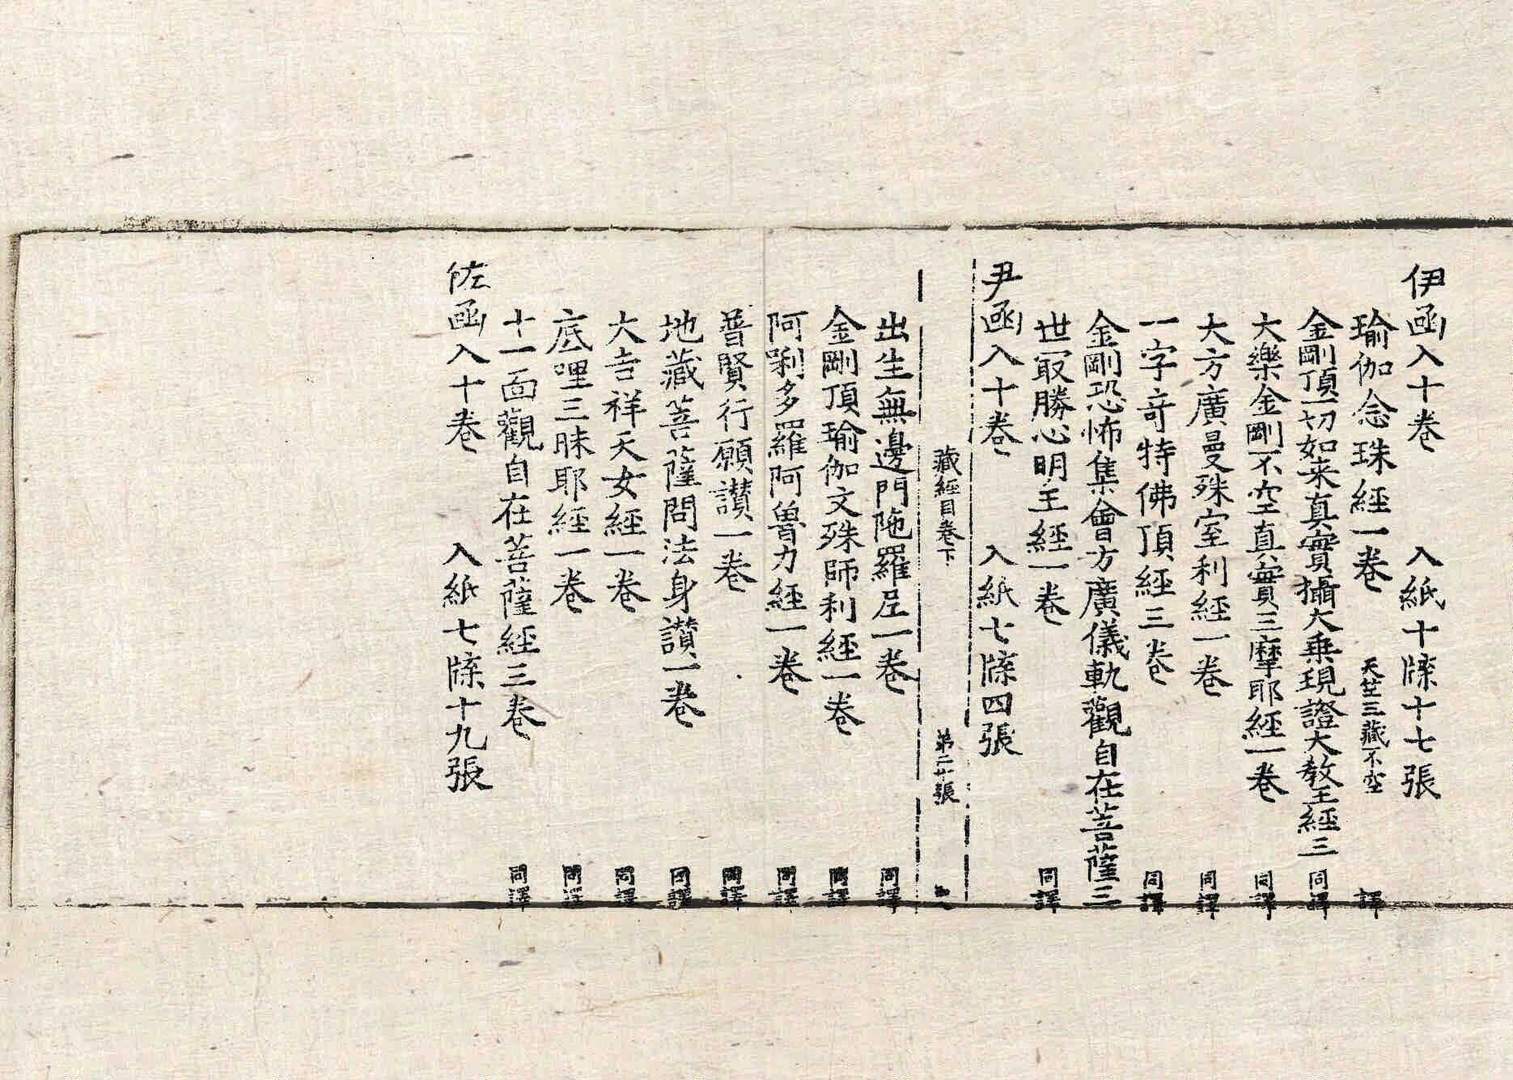 伊函入十卷　入紙十牒十七張
瑜伽念珠經一卷　天竺三藏不空　譯
金剛頂一切如来真實攝大乗現證大教王經三　同譯
大樂金剛不空真實三摩耶經一卷　同譯
大方廣曼殊室利經一卷　同譯
一字竒特佛頂經三卷　同譯
金剛恐怖集會方廣儀軌觀自在菩薩三
世㝡勝心明王經一卷　同譯
尹函入十卷　入紙七牒四張
藏經目卷下　第二十張
出生無邊門陁羅尼一卷　同譯
金剛頂瑜伽文殊師利經一卷　同譯
阿唎多羅阿魯力經一卷　同譯
普賢行願讃一卷　同譯
地藏菩薩問法身讃一卷　同譯
大吉祥天女經一卷　同譯
底哩三昧耶經一卷　同譯
十一面觀自在菩薩經三卷　同譯
佐函入十卷　入紙七牒十九張